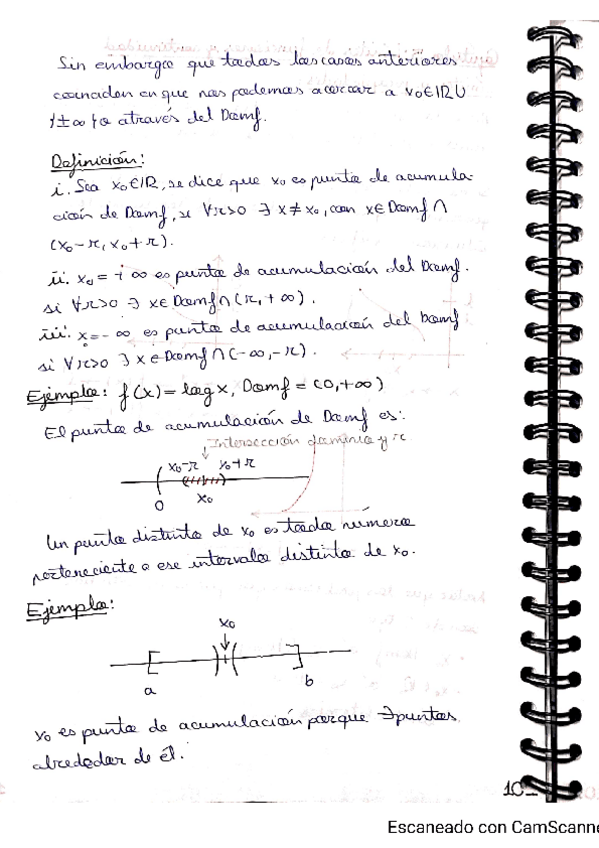 Sin embargo que todos los casos anteriores
coinciden en que nos podemos acercar a x₀∈ℝ∪
{±∞} a través del Domf.
Definición:
i. Sea x₀∈ℝ, se dice que x₀ es punto de acumula-
ción de Domf, si ∀r>0 ∃ x≠x₀, con x∈Domf ∩
(x₀-r, x₀+r).
ii. x₀ = +∞ es punto de acumulación del Domf.
si ∀r>0 ∃ x∈Domf∩(r,+∞).
iii. x₀=-∞ es punto de acumulación del Domf
si ∀r>0 ∃ x∈Domf∩(-∞,-r).
Ejemplo: f(x)=log x, Domf=(0,+∞)
El punto de acumulación de Domf es:
Intersección dominio y r.
x₀-r x₀+r
0 x₀
Un punto distinto de x₀ es todo número
perteneciente a ese intervalo distinto de x₀.
Ejemplo:
x₀
a b
x₀ es punto de acumulación porque ∃puntos
alrededor de él.
Escaneado con CamScanne